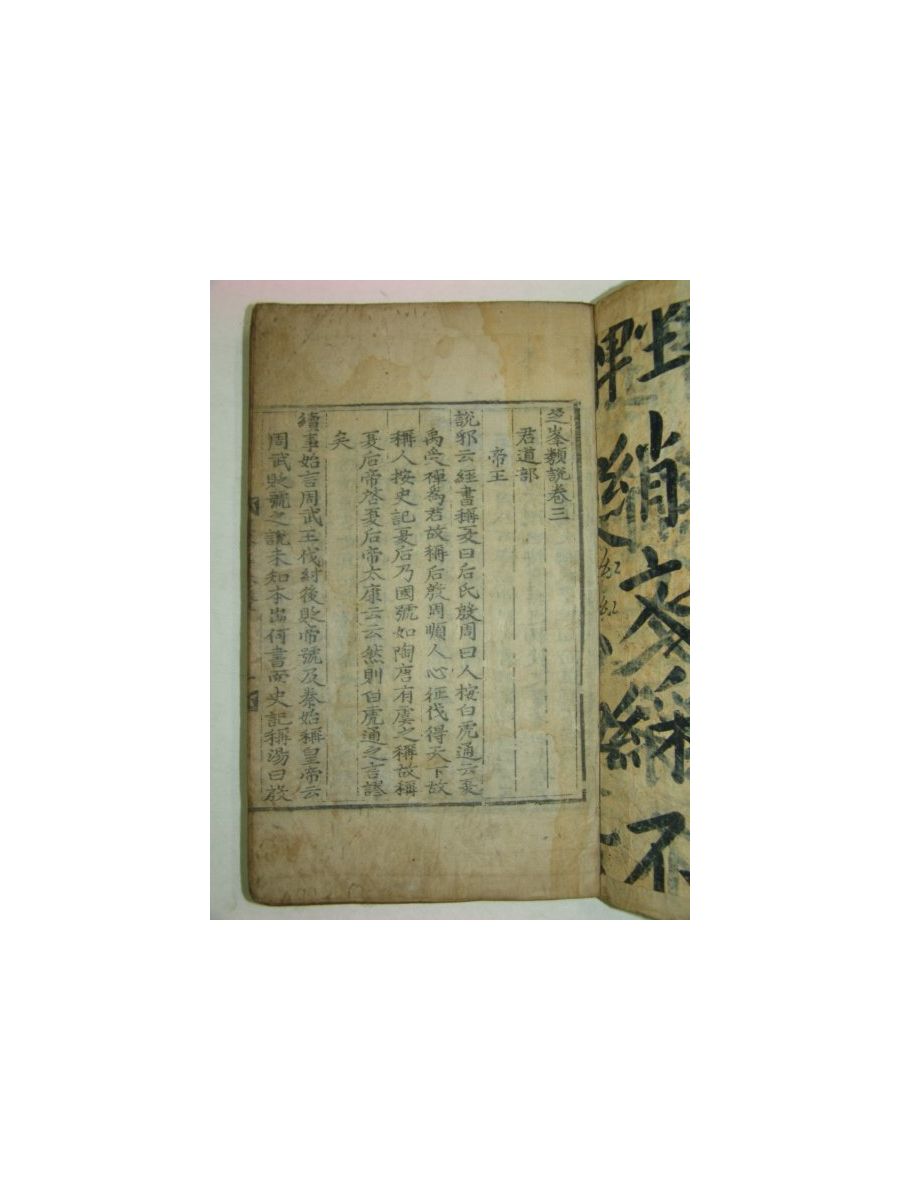 芝峯類說卷三
君道部
帝王
說郛云經書稱夏曰后氏殷周曰人按白虎通云夏
禹受禪爲君故稱后殷周順人心征伐得天下故
稱人按史記夏后乃國號如陶唐有虞之稱故稱
夏后帝啓夏后帝太康云云然則白虎通之言謬
矣
續事始言周武王伐紂後貶帝號及秦始稱皇帝云
周武貶號之說未知本出何書而史記稱湯曰放
綃文綵不